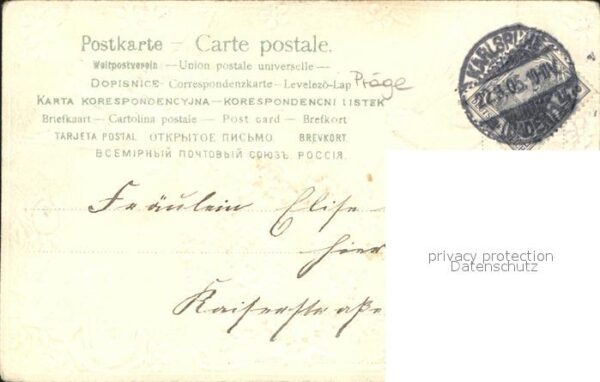 Postkarte – Carte postale.
Weltpostverein – Union postale universelle –
DOPISNICE – Correspondenzkarte – Levelező-Lap
Präge
KARTA KORESPONDENCYJNA – KORESPONDENCNI LISTEK
Briefkaart – Cartolina postale – Post card – Brefkort
TARJETA POSTAL ОТКРЫТОЕ ПИСЬМО. BREVKORT.
ВСЕМІРНЫЙ ПОЧТОВЫЙ СОЮЗЪ. РОССІЯ.
KARLSRUHE
Fräulein Elise
hier
Kaiserstraße
privacy protection
Datenschutz